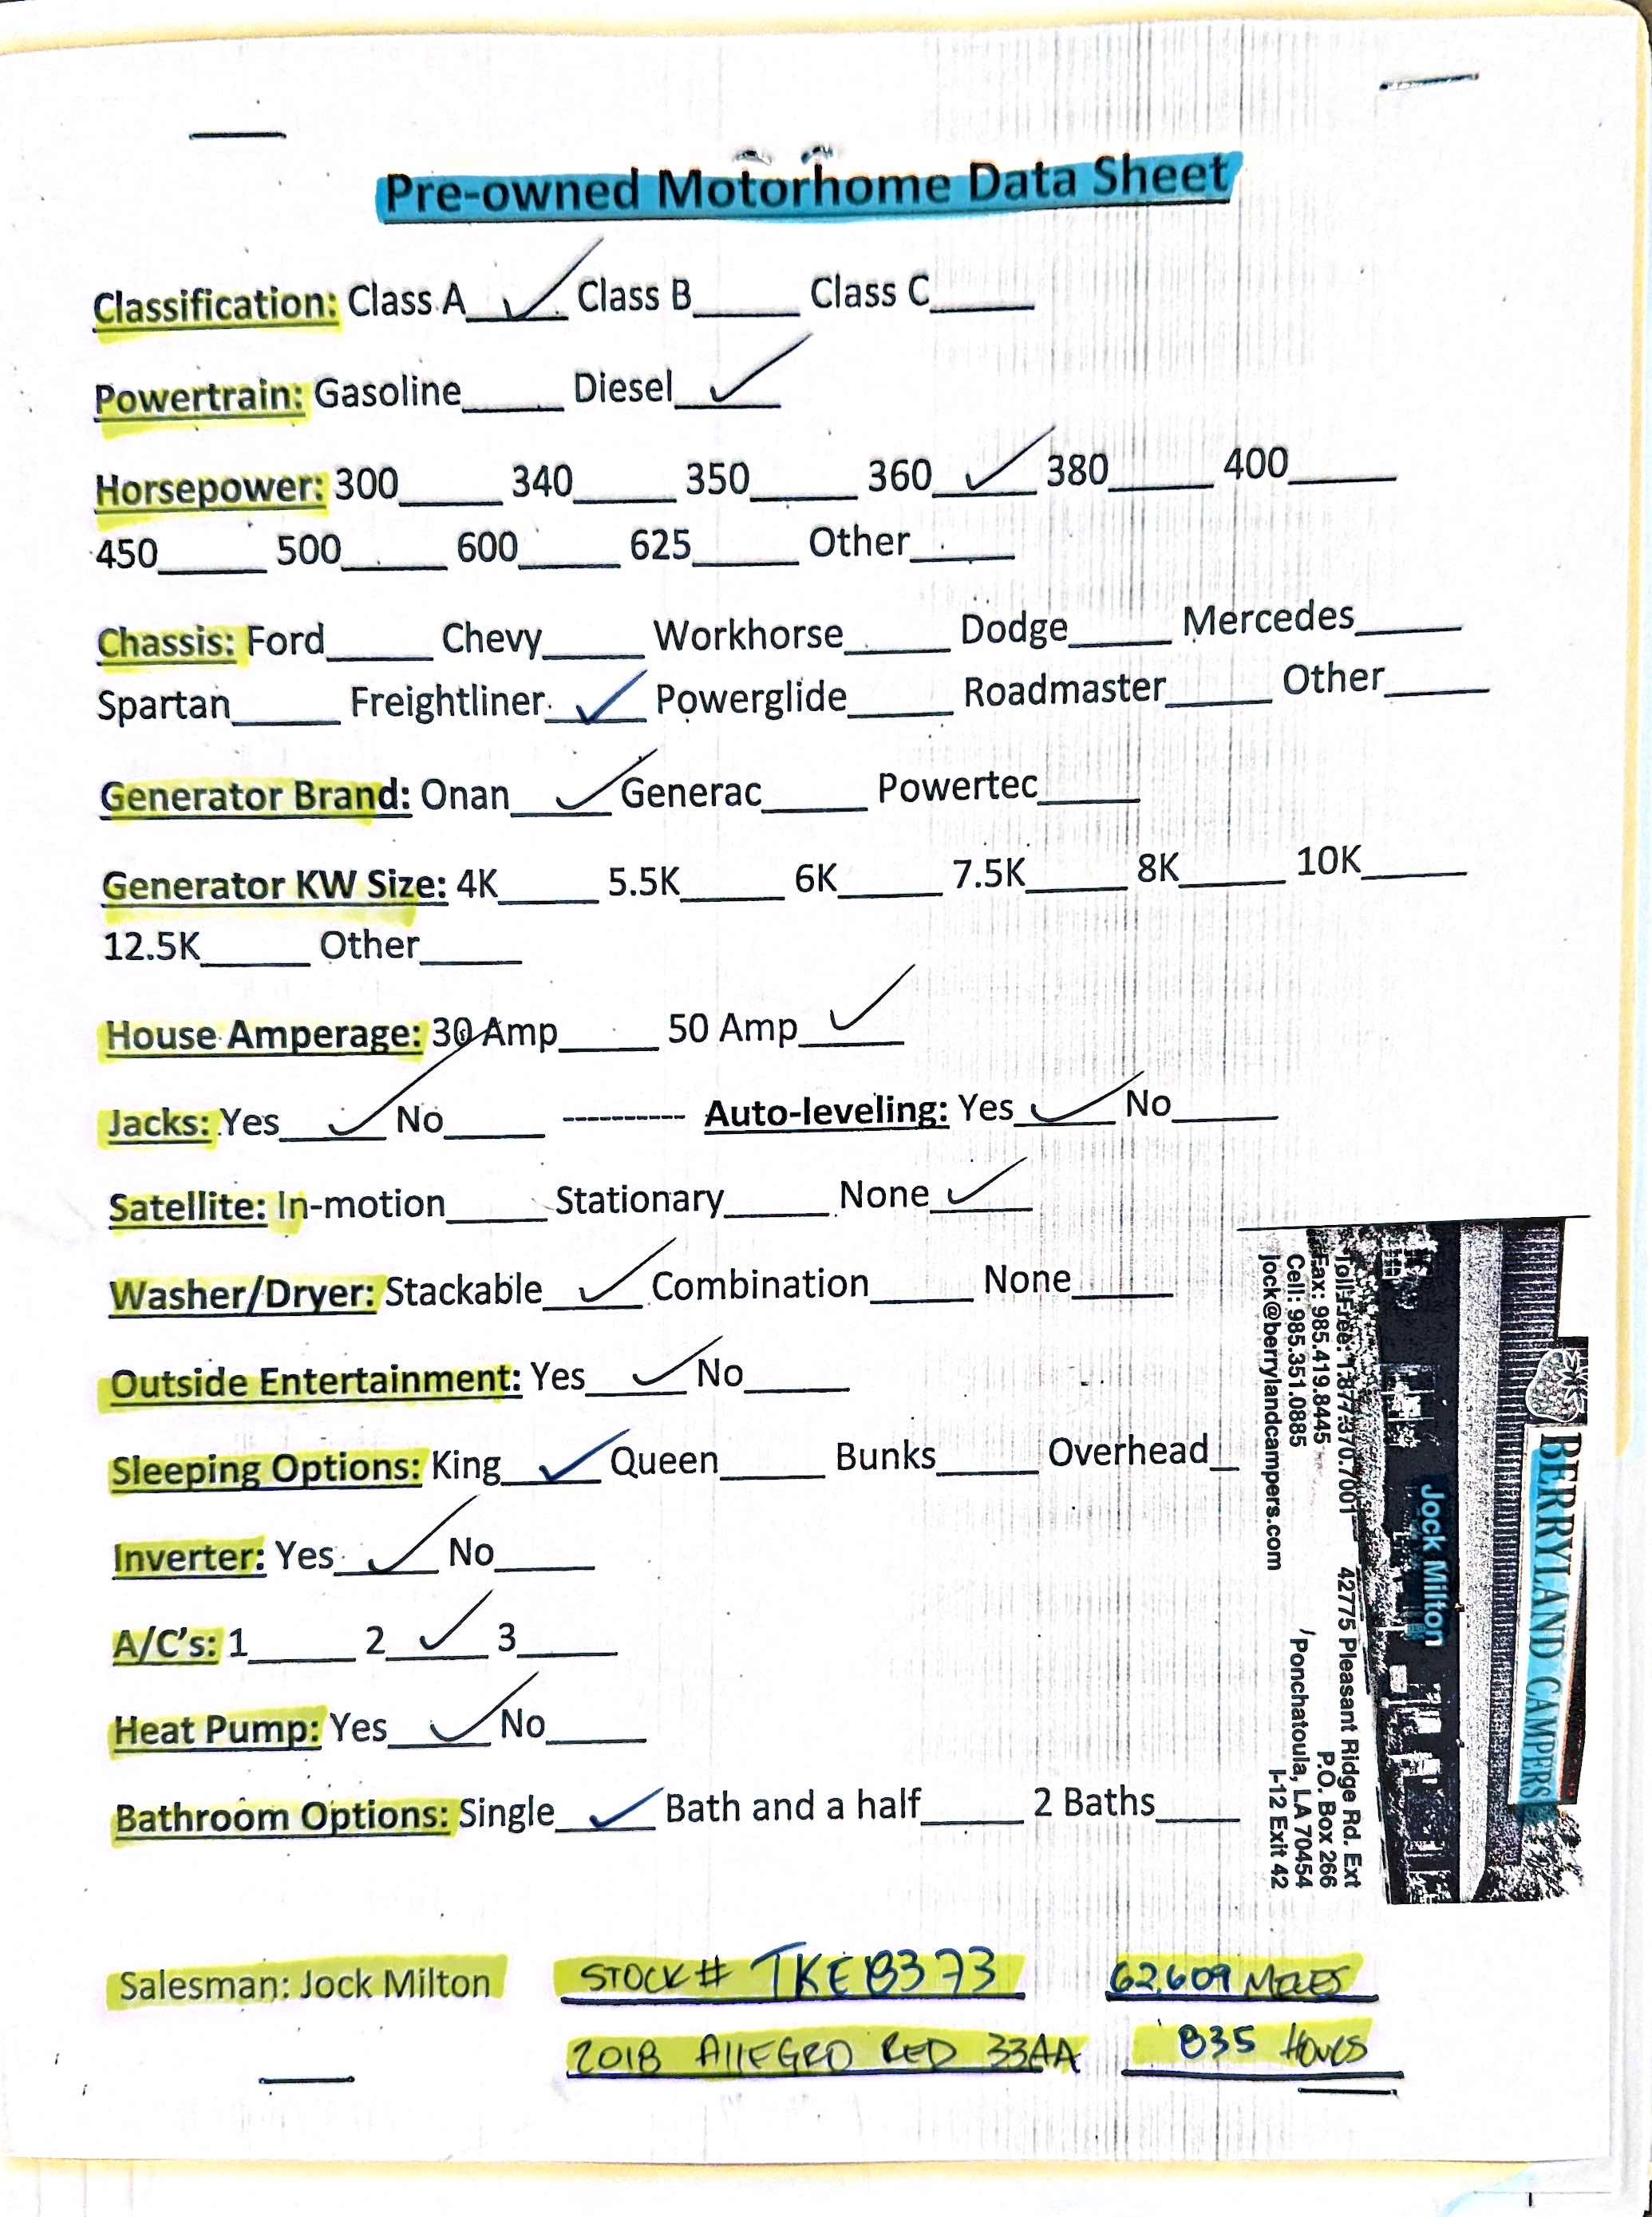 Pre-owned Motorhome Data Sheet
Classification: Class A ✓ Class B_____ Class C_____
Powertrain: Gasoline_____ Diesel ✓
Horsepower: 300_____ 340_____ 350_____ 360 ✓ 380_____ 400_____
450_____ 500_____ 600_____ 625_____ Other_____
Chassis: Ford_____ Chevy_____ Workhorse_____ Dodge_____ Mercedes_____
Spartan_____ Freightliner ✓ Powerglide_____ Roadmaster_____ Other_____
Generator Brand: Onan ✓ Generac_____ Powertec_____
Generator KW Size: 4K_____ 5.5K_____ 6K_____ 7.5K_____ 8K_____ 10K_____
12.5K_____ Other_____
House Amperage: 30 Amp_____ 50 Amp ✓
Jacks: Yes ✓ No_____ ---------- Auto-leveling: Yes ✓ No_____
Satellite: In-motion_____ Stationary_____ None ✓
Washer/Dryer: Stackable ✓ Combination_____ None_____
Outside Entertainment: Yes ✓ No_____
Sleeping Options: King ✓ Queen_____ Bunks_____ Overhead_
Inverter: Yes ✓ No_____
A/C's: 1_____ 2 ✓ 3_____
Heat Pump: Yes ✓ No_____
Bathroom Options: Single ✓ Bath and a half_____ 2 Baths_____
BERRYLAND CAMPERS
Jock Milton
Toll-Free: 1.877.370.7001 42775 Pleasant Ridge Rd. Ext
Fax: 985.419.8445 P.O. Box 266
Cell: 985.351.0885 Ponchatoula, LA 70454
jock@berrylandcampers.com I-12 Exit 42
Salesman: Jock Milton STOCK# TKE8373 62,609 MILES
2018 AllEGRO RED 33AA 835 HOURS